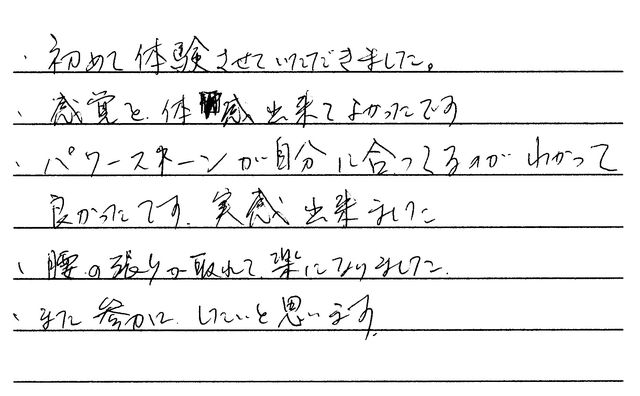 ・初めて体験させていただきました。
・感覚を、体感出来てよかったです
・パワーストーンが自分に合ってるのがわかって
良かったです。実感出来ました
・腰の張りが取れて、楽になりました。
・また参加に、したいと思います。